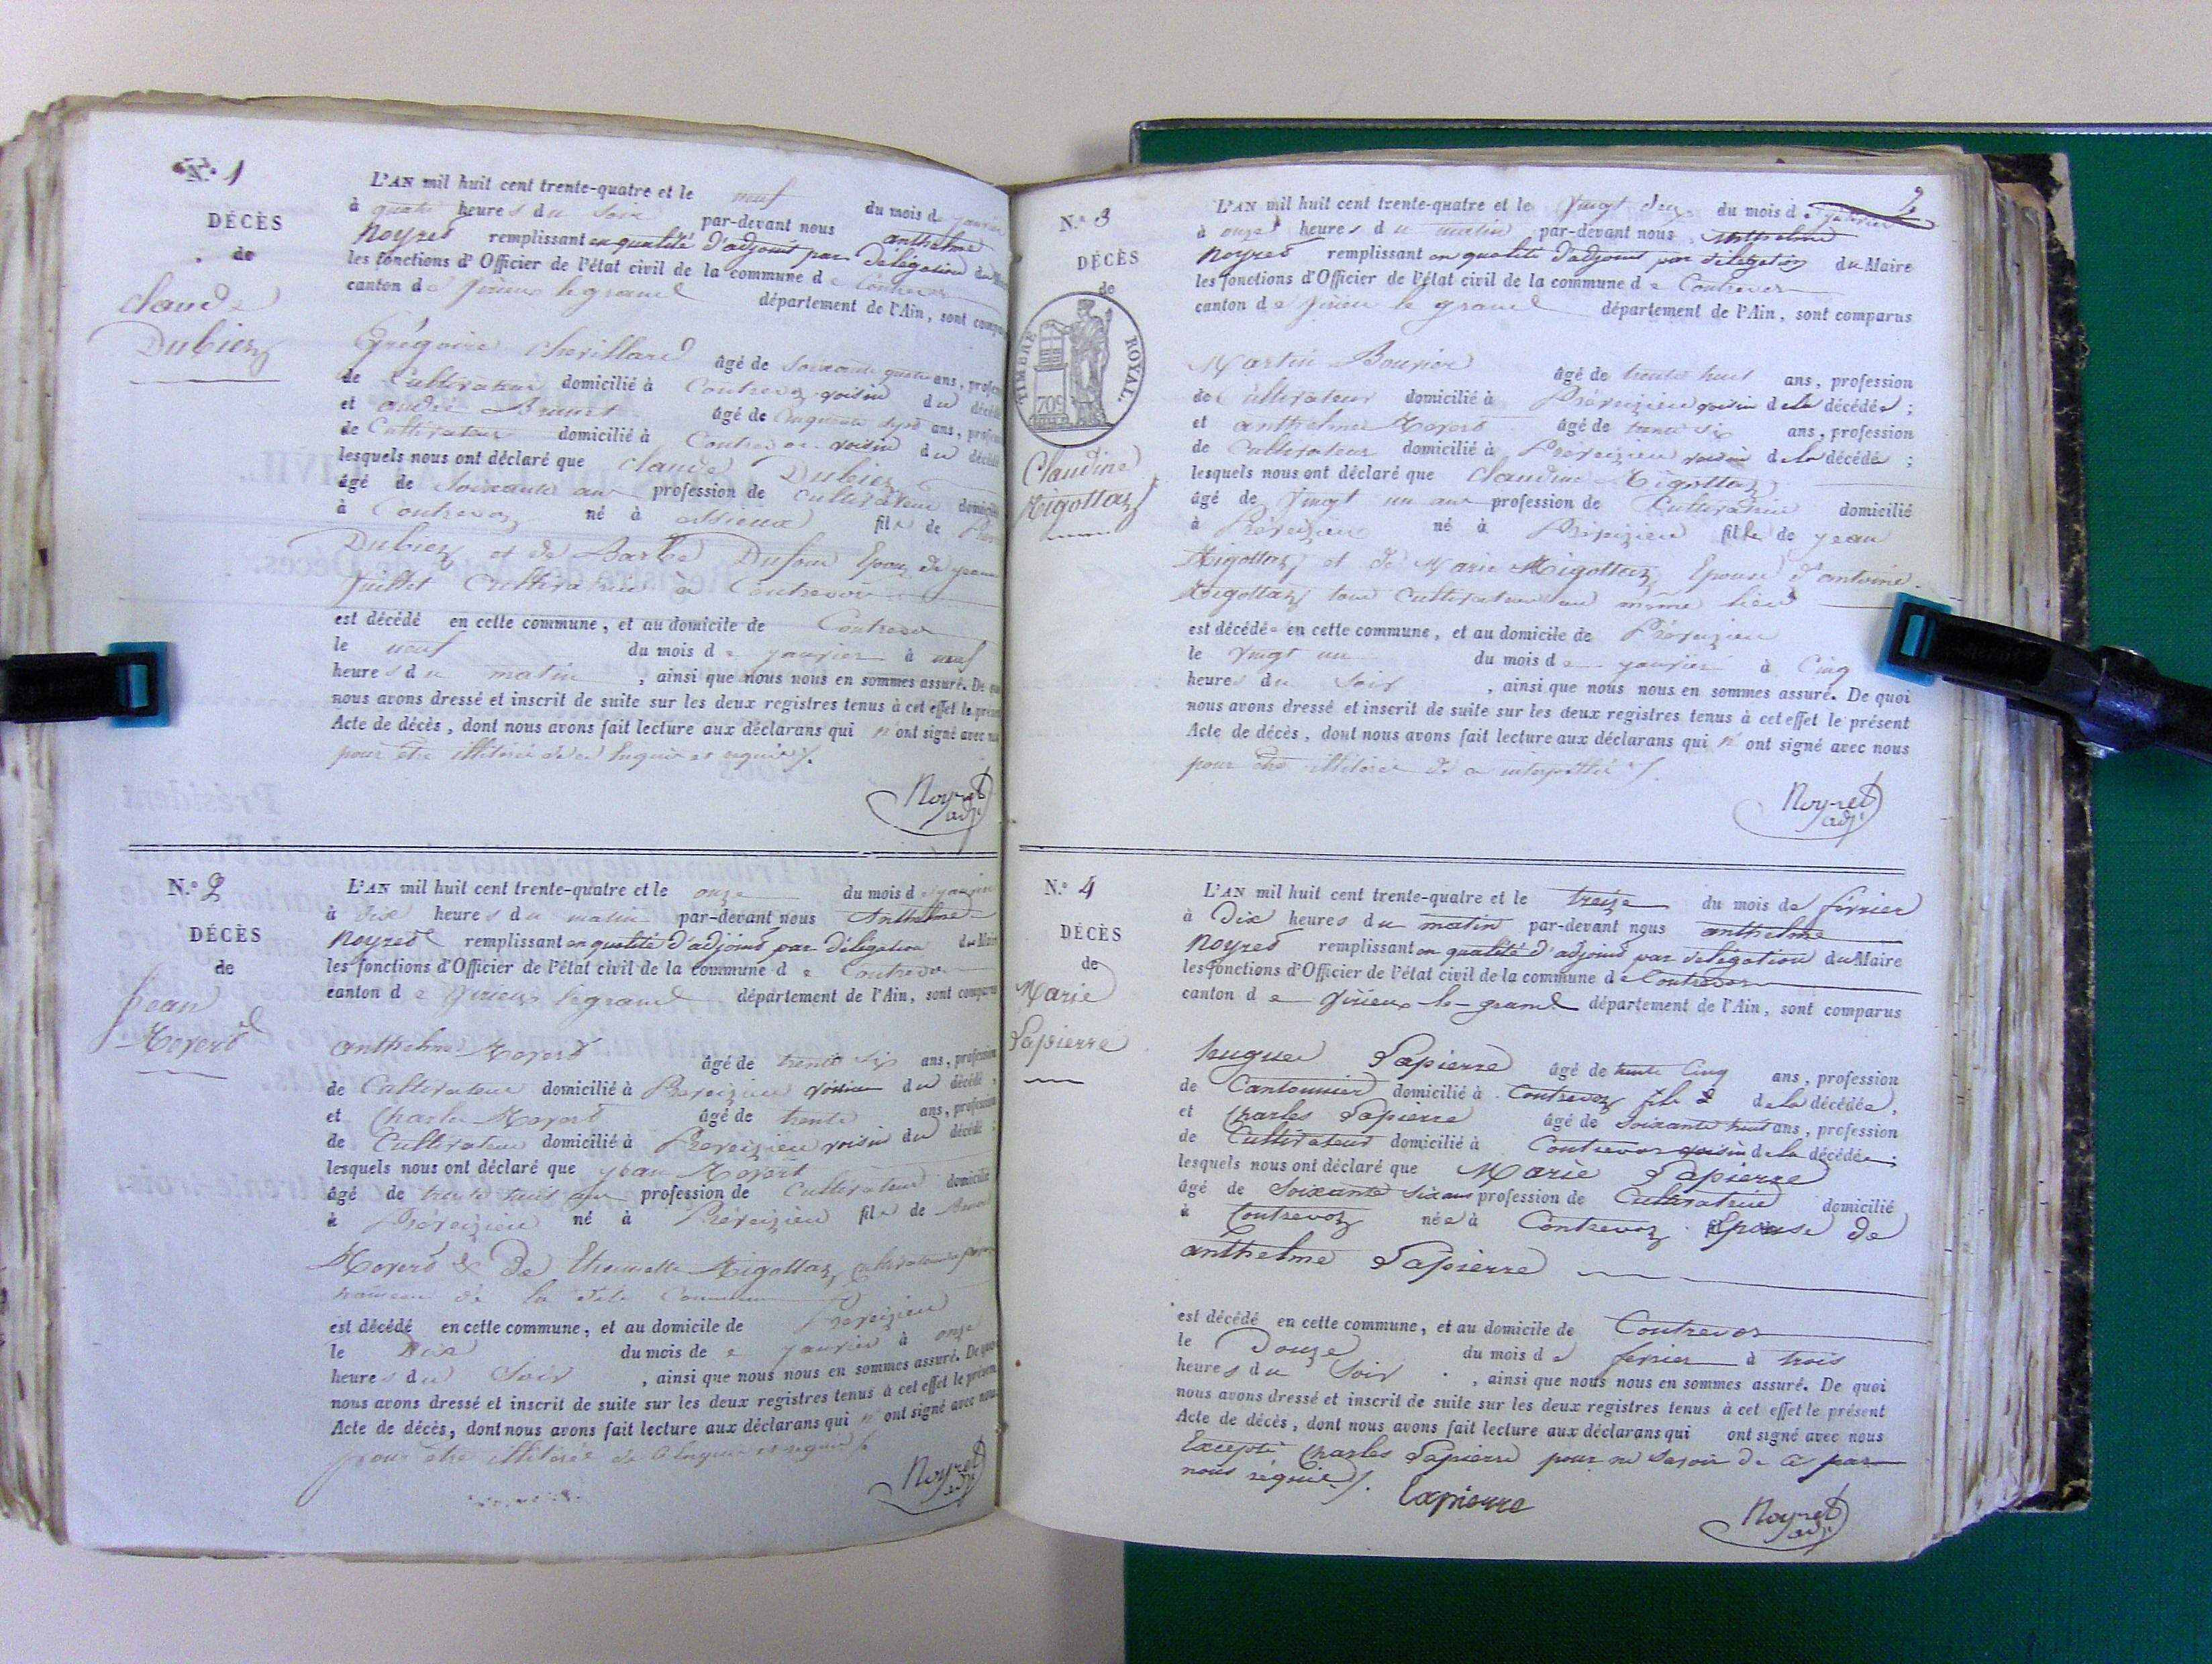 N.º 1
DÉCÈS
de
Claude
Dubiez
L'AN mil huit cent trente-quatre et le neuf du mois de janvier
à quatre heures du soir par-devant nous anthelme
Noyret remplissant en qualité d'adjoint par délégation du Maire
les fonctions d'Officier de l'état civil de la commune de Contrevoz
canton de Virieux le grand département de l'Ain, sont comparus
Grégoire Chevillard âgé de soixante quatre ans, profession
de Cultivateur domicilié à Contrevoz voisin du décédé
et andré Brunet âgé de Cinquante sept ans, profession
de Cultivateur domicilié à Contrevoz voisin du décédé
lesquels nous ont déclaré que Claude Dubiez
âgé de soixante ans profession de Cultivateur domicilié
à Contrevoz né à fils de
Dubiez et de Barbe Dufour Epoux de jeanne
Juillet Cultivatrice à Contrevoz
est décédé en cette commune, et au domicile de Contrevoz
le neuf du mois de janvier à neuf
heures du matin, ainsi que nous nous en sommes assuré. De quoi
nous avons dressé et inscrit de suite sur les deux registres tenus à cet effet le présent
Acte de décès, dont nous avons fait lecture aux déclarans qui n'ont signé avec nous
pour être illitérés de ce Enquis et requis ./.
Noyret
adj.
N.º 2
DÉCÈS
de
Jean
Moyert
L'AN mil huit cent trente-quatre et le onze du mois de janvier
à Dix heures du matin par-devant nous Anthelme
Noyret remplissant en qualité d'adjoint par délégation du Maire
les fonctions d'Officier de l'état civil de la commune de Contrevoz
canton de Virieux le grand département de l'Ain, sont comparus
anthelme Moyert âgé de trente six ans, profession
de Cultivateur domicilié à Preveizieu voisin du décédé,
et Charles Moyert âgé de trente ans, profession
de Cultivateur domicilié à Preveizieu voisin du décédé;
lesquels nous ont déclaré que jean Moyert
âgé de trente huit ans profession de Cultivateur domicilié
à Préveizieu né à Préveizieu fils de
Moyert & De Thiennette Rigottaz
hameau de la dite Commune
est décédé en cette commune, et au domicile de Preveizieu
le Dix du mois de janvier à onze
heures du Soir, ainsi que nous nous en sommes assuré. De quoi
nous avons dressé et inscrit de suite sur les deux registres tenus à cet effet le présent
Acte de décès, dont nous avons fait lecture aux déclarans qui n'ont signé avec nous
pour être illitérés de ce Enquis et requis ./.
Noyret
adj.
2
N.º 3
DÉCÈS
de
TIMBRE ROYAL.
Claudine
Rigottaz
L'AN mil huit cent trente-quatre et le Vingt deux du mois de janvier
à onze heures du matin par-devant nous Anthelme
Noyret remplissant en qualité d'adjoint par délégation du Maire
les fonctions d'Officier de l'état civil de la commune de Contrevoz
canton de Virieu le grand département de l'Ain, sont comparus
Martin Bouvier âgé de trente huit ans, profession
de Cultivateur domicilié à Préveizieu voisin de la décédée;
et anthelme Moyert âgé de trente six ans, profession
de Cultivateur domicilié à Préveizieu voisin de la décédé;
lesquels nous ont déclaré que Claudine Rigottaz
âgé de Vingt un ans profession de Cultivatrice domicilié
à Préveizieu né à Préveizieu fille de jean
Rigottaz et de Marie Rigottaz Epouse d'antoine
Rigottaz tous Cultivateurs au même lieu
est décédée en cette commune, et au domicile de Préveizieu
le vingt un du mois de janvier à Cinq
heures du Soir, ainsi que nous nous en sommes assuré. De quoi
nous avons dressé et inscrit de suite sur les deux registres tenus à cet effet le présent
Acte de décès, dont nous avons fait lecture aux déclarans qui n'ont signé avec nous
pour être illitérés de ce interpellés ./.
Noyret
adj.
N.º 4
DÉCÈS
de
Marie
Lapierre
L'AN mil huit cent trente-quatre et le treize du mois de février
à Dix heures du matin par-devant nous anthelme
Noyret remplissant en qualité d'adjoint par délégation du Maire
les fonctions d'Officier de l'état civil de la commune de Contrevoz
canton de Virieux-le-grand département de l'Ain, sont comparus
hugues Lapierre âgé de trente Cinq ans, profession
de Cantonnier domicilié à Contrevoz fils de la décédée,
et Charles Lapierre âgé de soixante huit ans, profession
de Cultivateur domicilié à Contrevoz voisin de la décédée;
lesquels nous ont déclaré que Marie Lapierre
âgé de soixante six ans profession de Cultivatrice domicilié
à Contrevoz née à Contrevoz Epouse de
anthelme Lapierre
est décédé en cette commune, et au domicile de Contrevoz
le Douze du mois de fevrier à trois
heures du Soir, ainsi que nous nous en sommes assuré. De quoi
nous avons dressé et inscrit de suite sur les deux registres tenus à cet effet le présent
Acte de décès, dont nous avons fait lecture aux déclarans qui ont signé avec nous
Excepté Charles Lapierre pour ne savoir de ce par
nous réquis ./.
Lapierre
Noyret
adj.